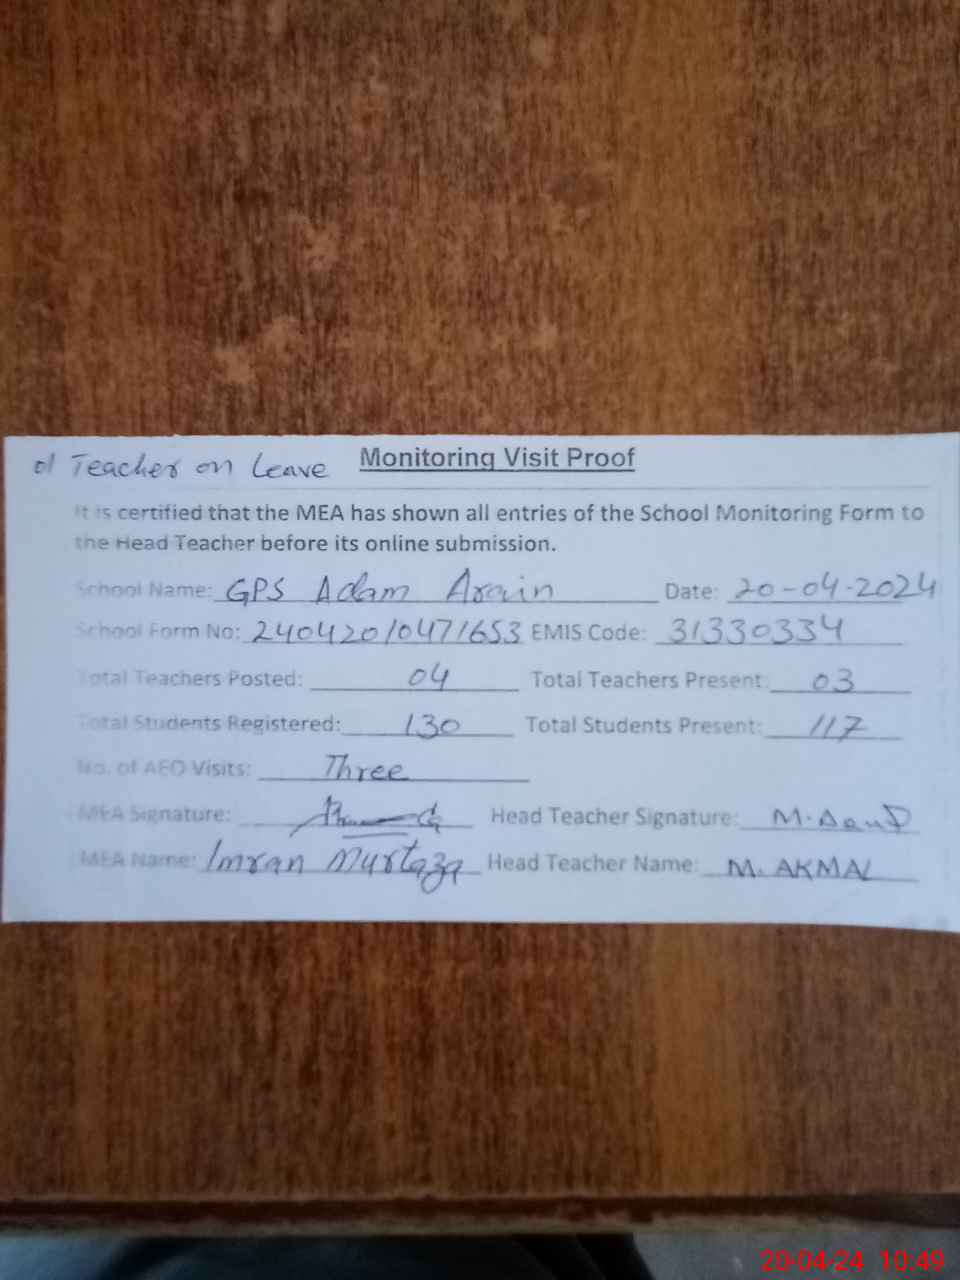 01 Teacher on Leave Monitoring Visit Proof
It is certified that the MEA has shown all entries of the School Monitoring Form to
the Head Teacher before its online submission.
School Name: GPS Adam Arain Date: 20-04-2024
School Form No: 240420/0471653 EMIS Code: 31330334
Total Teachers Posted: 04 Total Teachers Present: 03
Total Students Registered: 130 Total Students Present: 117
No. of AEO Visits: Three
MEA Signature: Head Teacher Signature:
MEA Name: Imran Murtaza Head Teacher Name: M. AKMAL
20-04-24 10:49